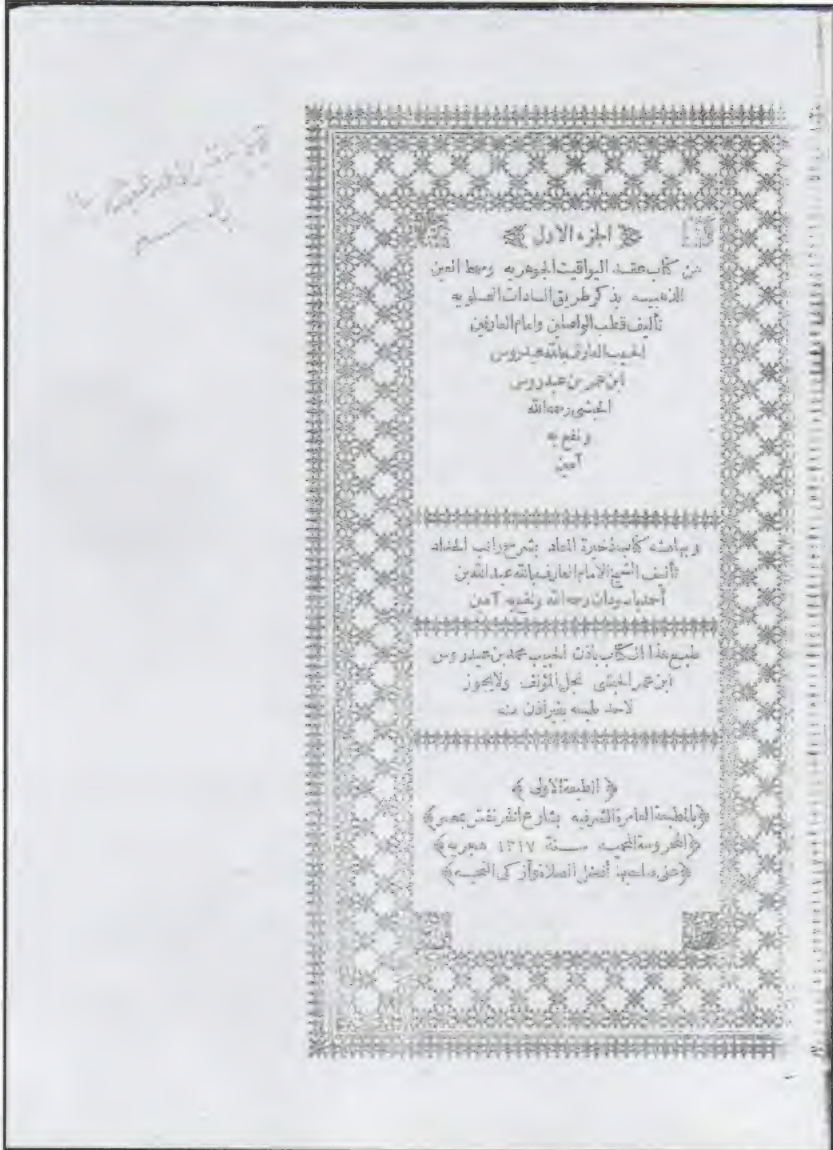 ﴿ الجزء الاول ﴾
من كتاب عقد اليواقيت الجوهريه وسمط العين
الذهبيه بذكر طريق السادات العلويه
تأليف قطب الواصلين وامام العارفين
الحبيب العارف بالله عيدروس
ابن عمر بن عيدروس
الحبشى رحمه الله
ونفع به
آمين
وبهامشه كتاب ذخيرة المعاد بشرح راتب الحداد
تأليف الشيخ الامام العارف بالله عبد الله بن
أحمد باسودان رحمه الله ونفع به آمين
طبع هذا الكتاب باذن الحبيب محمد بن عيدروس
ابن عمر الحبشى نجل المؤلف ولا يجوز
لاحد طبعه بغير اذن منه
﴿ الطبعة الاولى ﴾
﴿بالمطبعة العامرة الشرفيه بشارع الخرنفش بمصر﴾
﴿المحروسة المحميه سنة ١٣١٧ هجريه﴾
﴿على صاحبها أفضل الصلاة وأزكى التحيه﴾